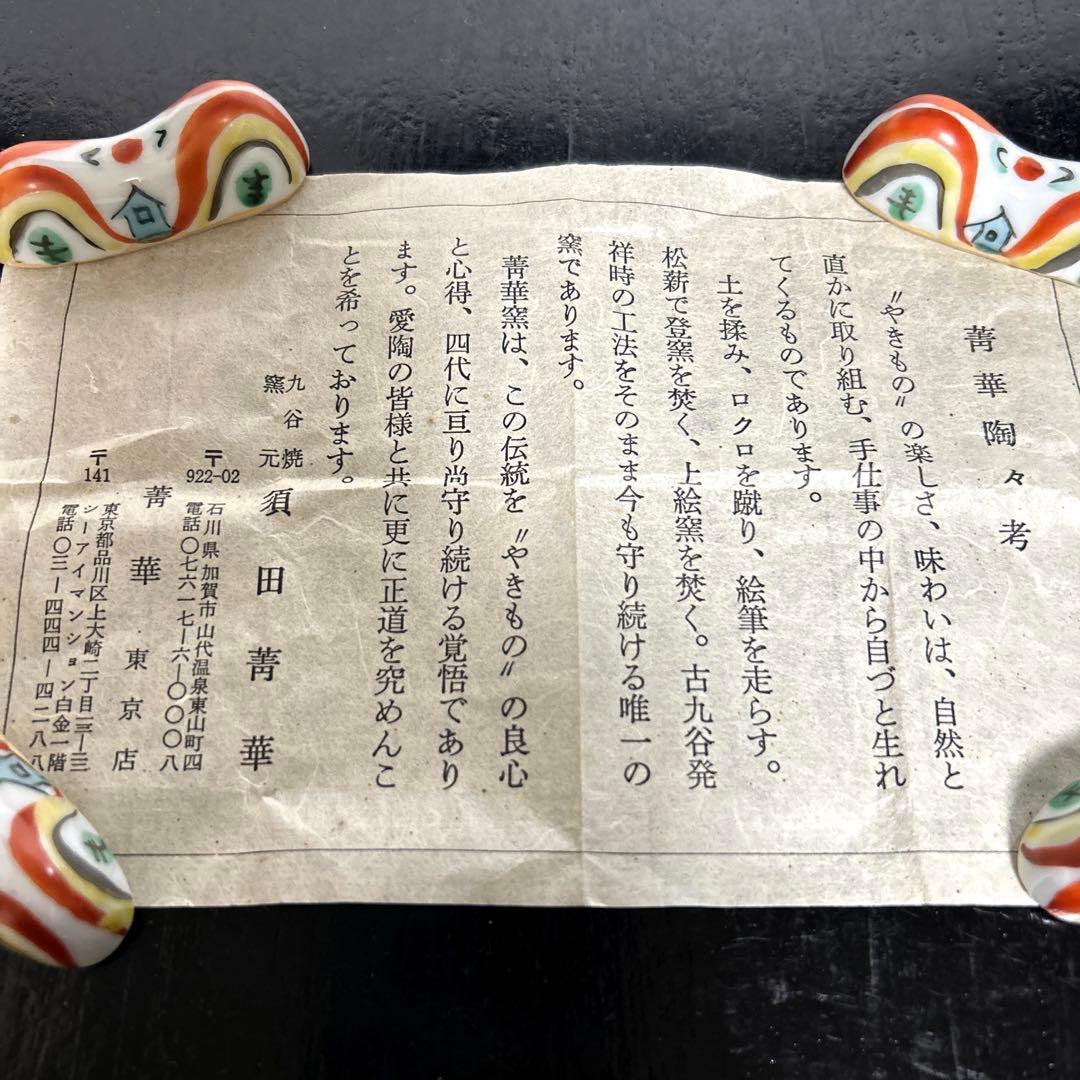 菁華陶々考
〝やきもの〟の楽しさ、味わいは、自然と
直かに取り組む、手仕事の中から自づと生れ
てくるものであります。
土を揉み、ロクロを蹴り、絵筆を走らす。
松薪で登窯を焚く、上絵窯を焚く。古九谷発
祥時の工法をそのまま今も守り続ける唯一の
窯であります。
菁華窯は、この伝統を〝やきもの〟の良心
と心得、四代に亘り尚守り続ける覚悟であり
ます。愛陶の皆様と共に更に正道を究めんこ
とを希っております。
九谷焼
窯元
須田菁華
〒922-02
石川県加賀市山代温泉東山町四
電話〇七六一七―六―〇〇〇八
菁華東京店
〒141
東京都品川区上大崎二丁目
シーアイマンション白金一階
電話〇三―四四四―四二八八